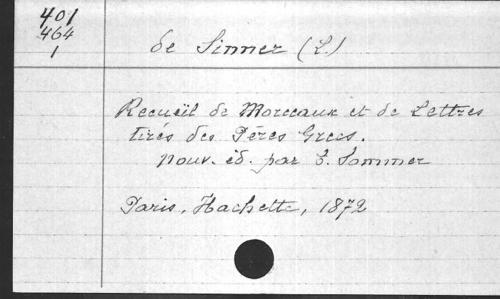 401
464
1
de Sinner (L.)
Recueil de Morceaux et de Lettres
tirés des Pères Grecs.
nouv. éd. par E. Sommer
Paris, Hachette, 1872